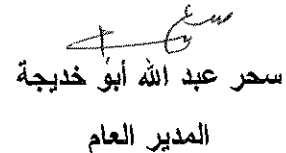 سحر عبد الله أبو خديجة
المدير العام